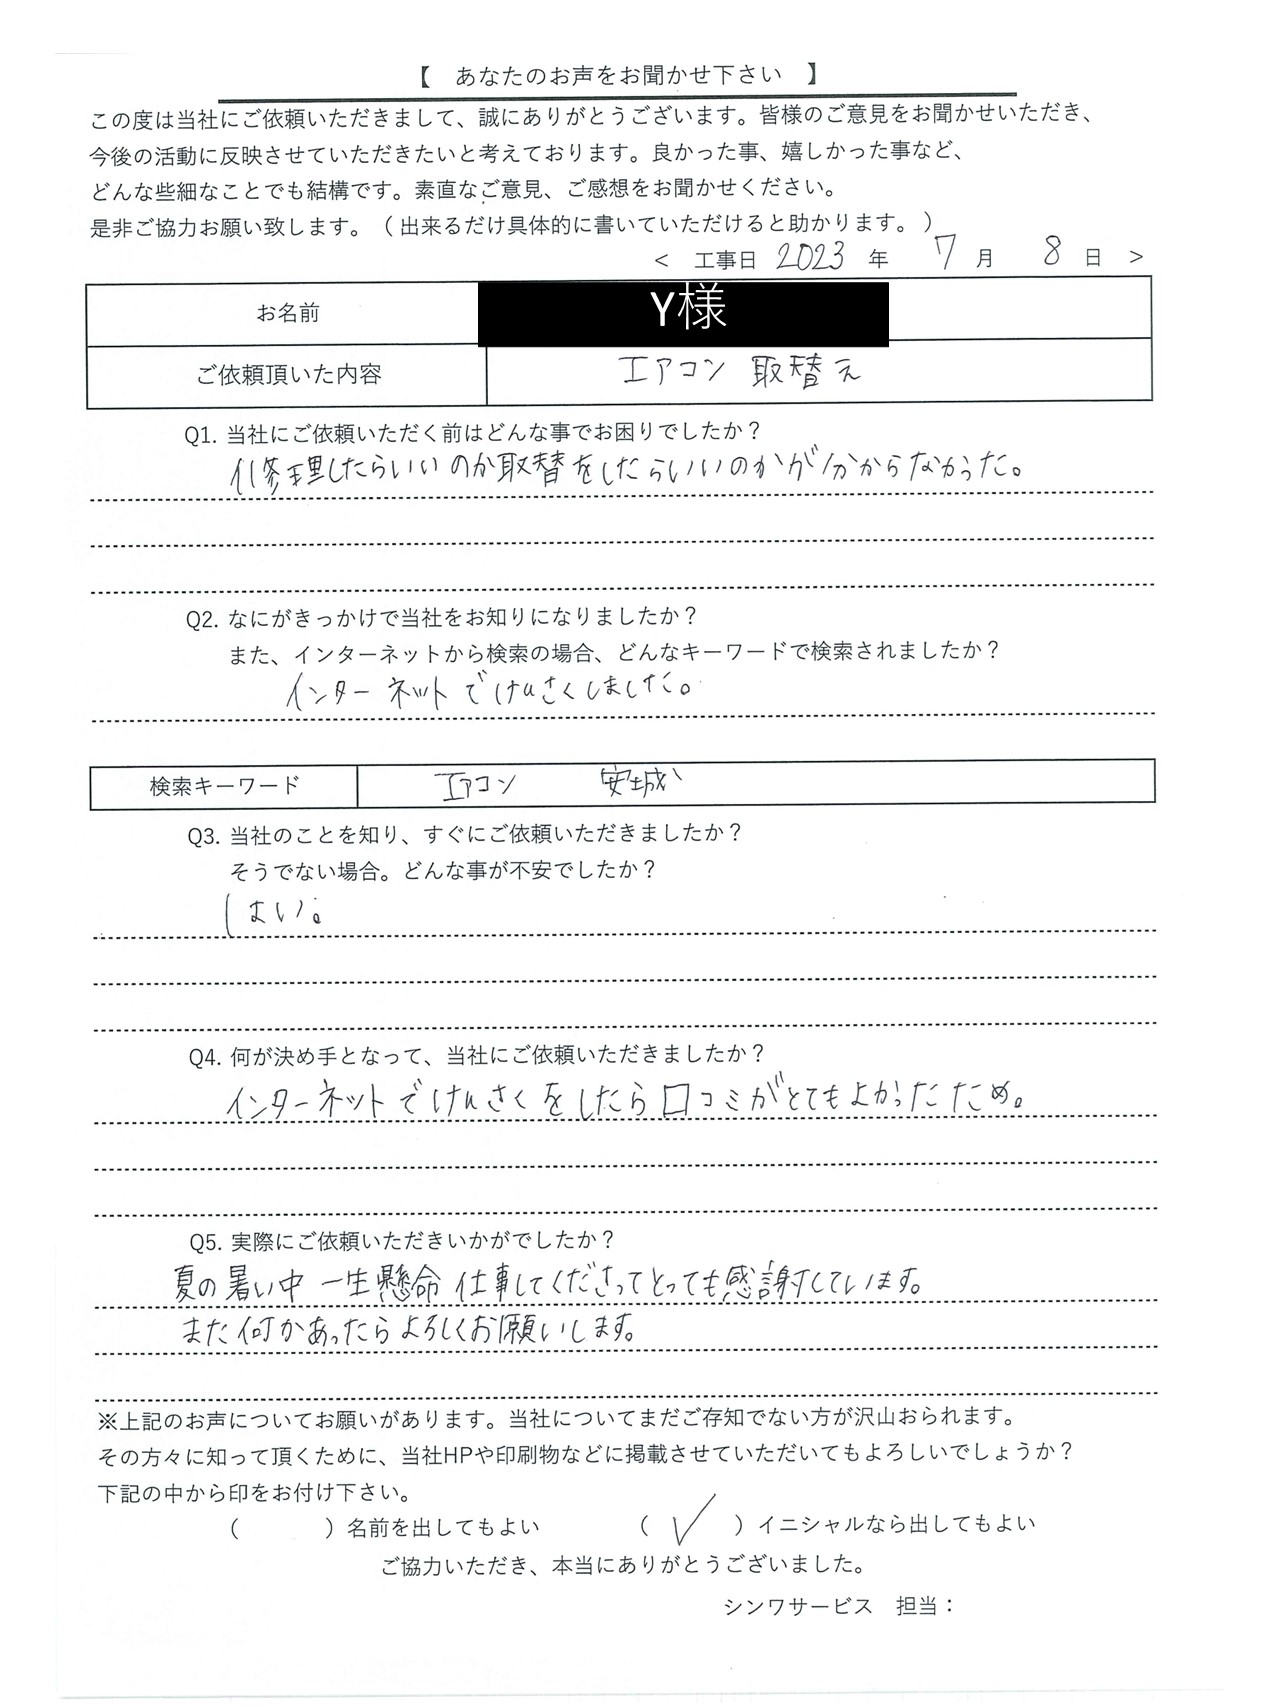 【 あなたのお声をお聞かせ下さい 】
この度は当社にご依頼いただきまして、誠にありがとうございます。皆様のご意見をお聞かせいただき、
今後の活動に反映させていただきたいと考えております。良かった事、嬉しかった事など、
どんな些細なことでも結構です。素直なご意見、ご感想をお聞かせください。
是非ご協力お願い致します。（ 出来るだけ具体的に書いていただけると助かります。）
＜ 工事日 2023 年 7 月 8 日 ＞
お名前 Y様
ご依頼頂いた内容 エアコン 取替え
Q1. 当社にご依頼いただく前はどんな事でお困りでしたか？
修理したらいいのか取替をしたらいいのかが分からなかった。
Q2. なにがきっかけで当社をお知りになりましたか？
また、インターネットから検索の場合、どんなキーワードで検索されましたか？
インターネットでけんさくしました。
検索キーワード エアコン 安城
Q3. 当社のことを知り、すぐにご依頼いただきましたか？
そうでない場合。どんな事が不安でしたか？
はい。
Q4. 何が決め手となって、当社にご依頼いただきましたか？
インターネットでけんさくをしたら口コミがとてもよかったため。
Q5. 実際にご依頼いただきいかがでしたか？
夏の暑い中 一生懸命 仕事してくださってとっても感謝しています。
また何かあったらよろしくお願いします。
※上記のお声についてお願いがあります。当社についてまだご存知でない方が沢山おられます。
その方々に知って頂くために、当社HPや印刷物などに掲載させていただいてもよろしいでしょうか？
下記の中から印をお付け下さい。
（　　　）名前を出してもよい （ ✓ ）イニシャルなら出してもよい
ご協力いただき、本当にありがとうございました。
シンワサービス 担当：